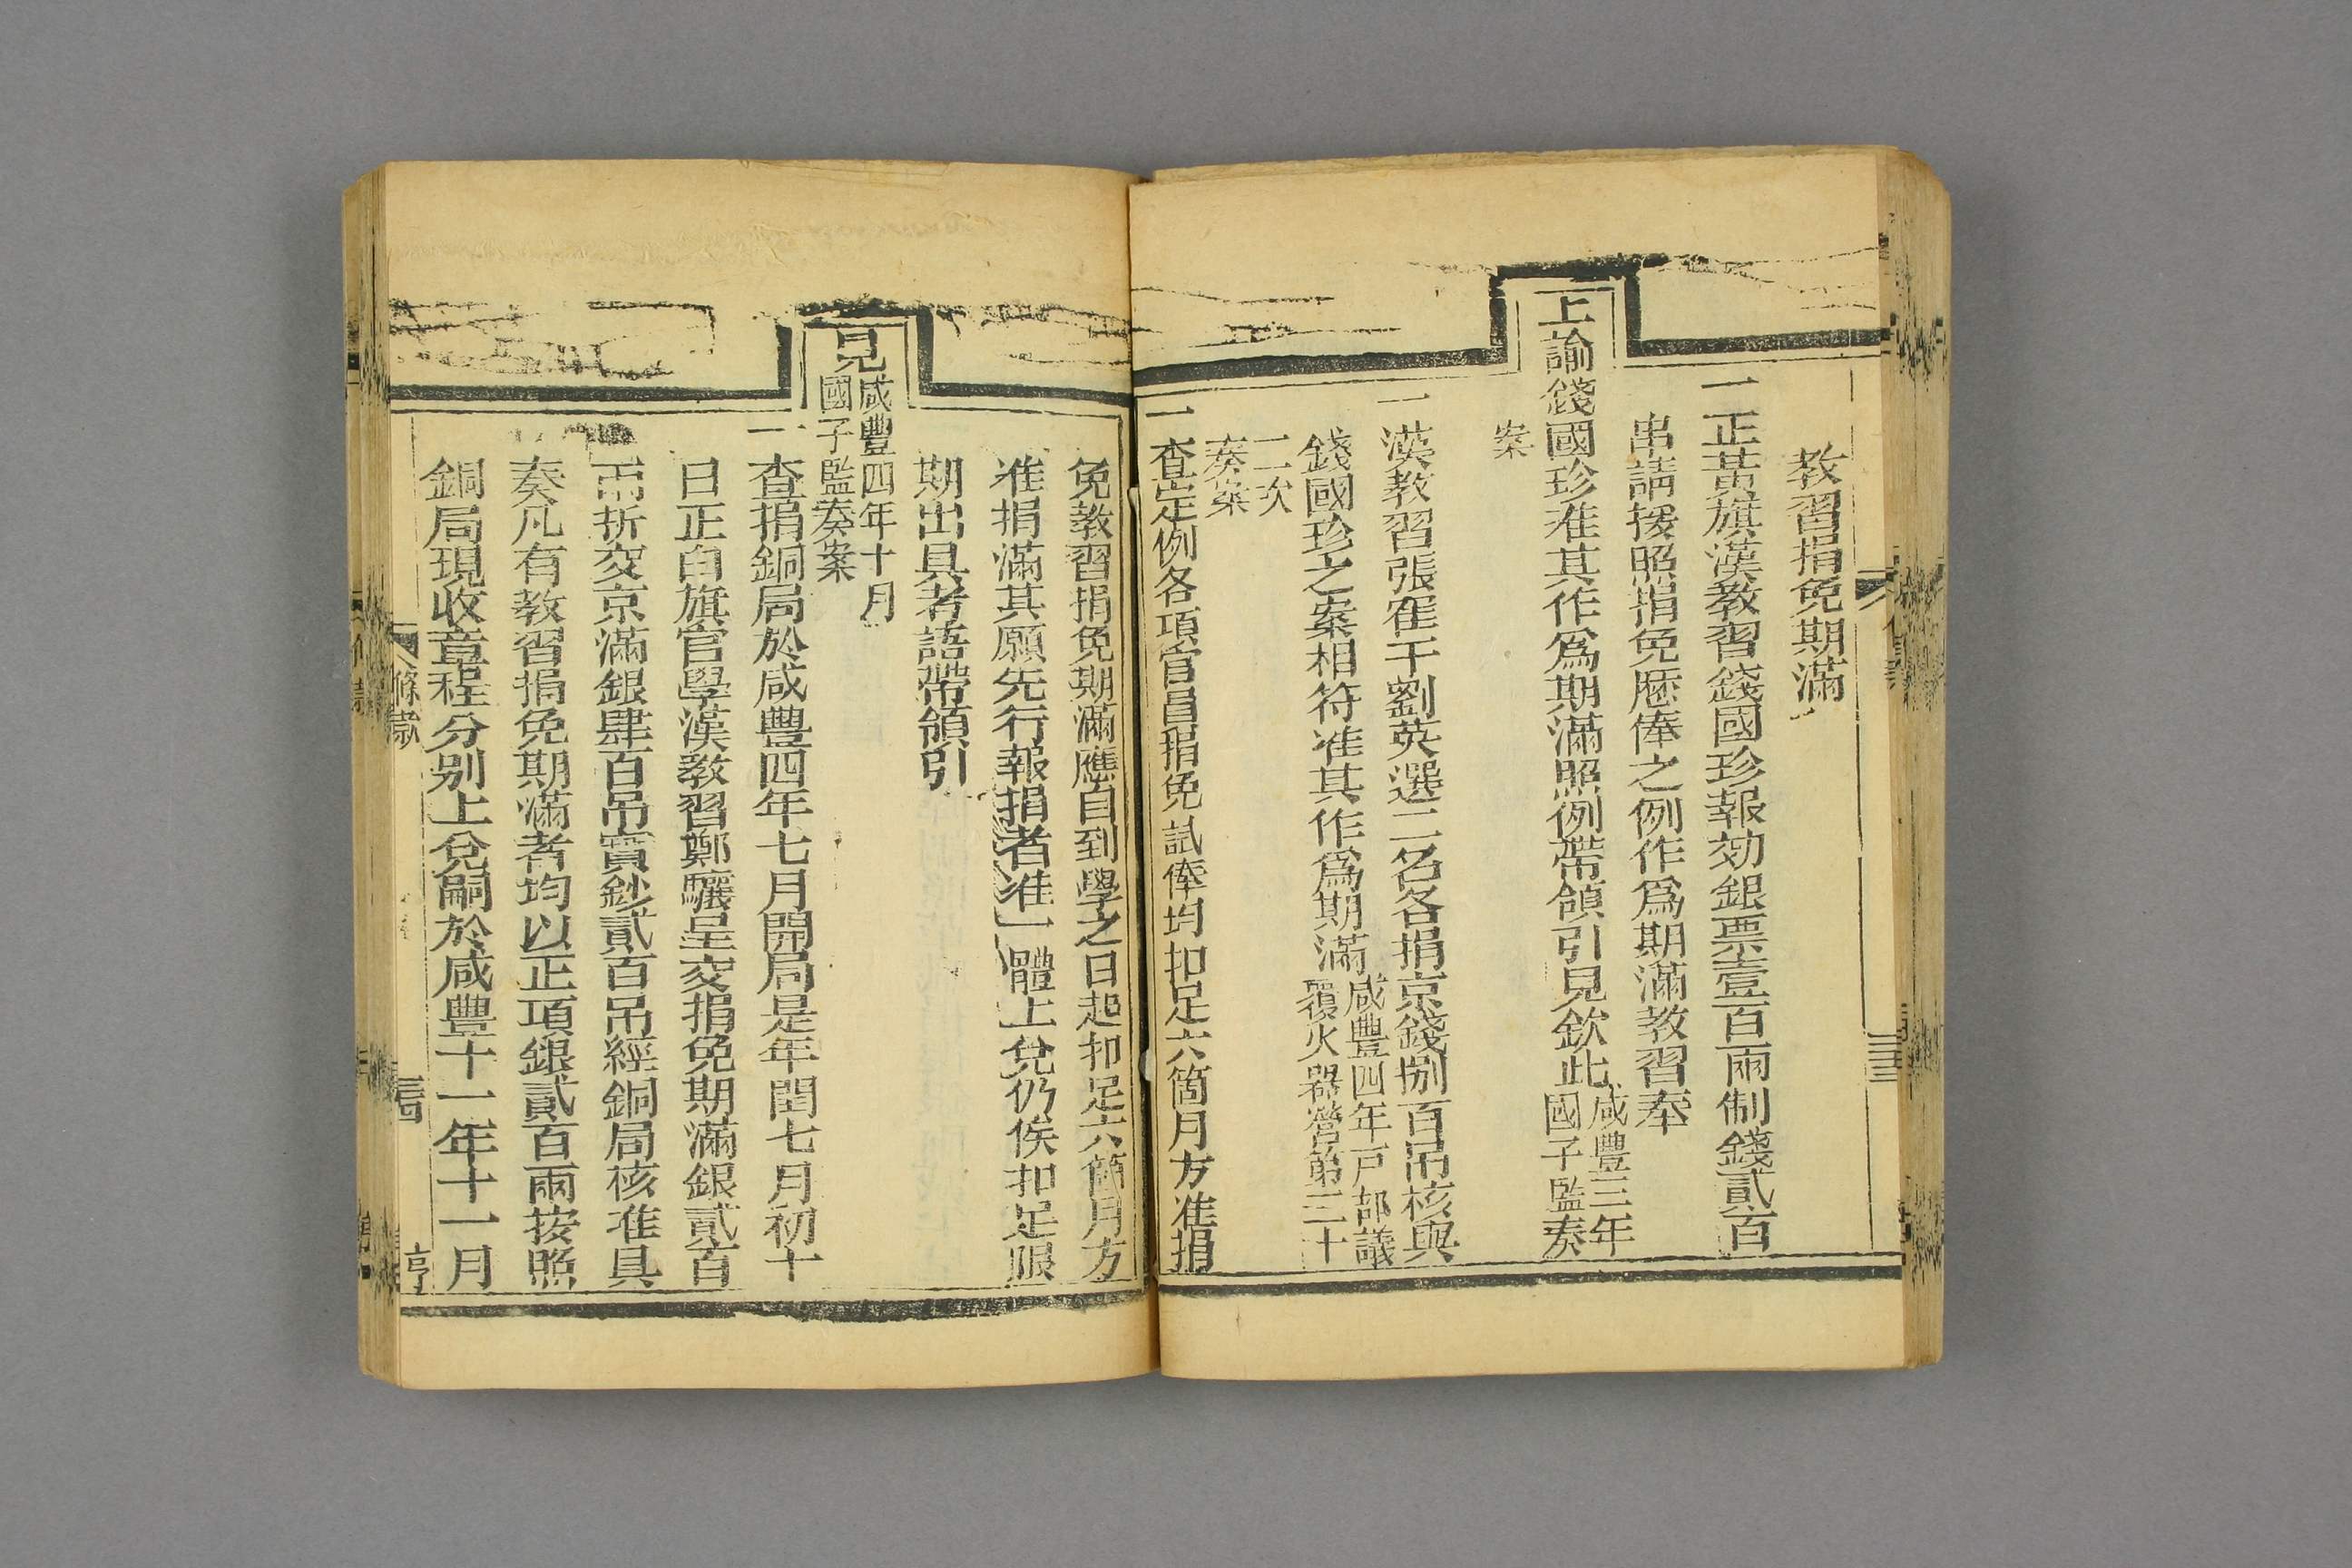 教習捐免期滿
一正黃旗漢教習錢國珍報効銀票壹百兩制錢貳百
串請援照捐免歷俸之例作爲期滿教習奉
上諭錢國珍准其作爲期滿照例帶領引見欽此咸豐三年
國子監奏
案
一漢教習張寉干劉英選二名各捐京錢捌百吊核與
錢國珍之案相符准其作爲期滿咸豐四年戸部議
覆火器營第三十
二次
奏案
一查定例各項官員捐免試俸均扣足六箇月方准捐
免教習捐免期滿應自到學之日起扣足六箇月方
准捐滿其願先行報捐者准一體上兌仍俟扣足限
期出具考語帶領引
見咸豐四年十月
國子監奏案
一查捐銅局於咸豐四年七月開局是年閏七月初十
日正白旗官學漢教習鄭驤呈交捐免期滿銀貳百
兩折交京滿銀肆百吊寶鈔貳百吊經銅局核准具
奏凡有教習捐免期滿者均以正項銀貳百兩按照
銅局現收章程分別上兌嗣於咸豐十一年十一月
條款
亨